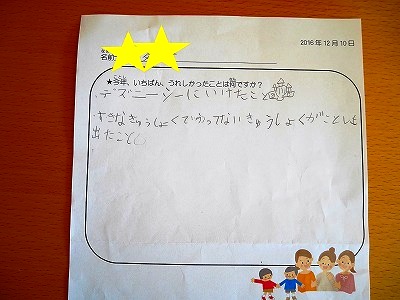 2016年12月10日
名前
★今年、いちばん、うれしかったことは何ですか？
ディズニーシーにいけたこと
すきなきゅうしょくで
しょくがことしも
出たこと